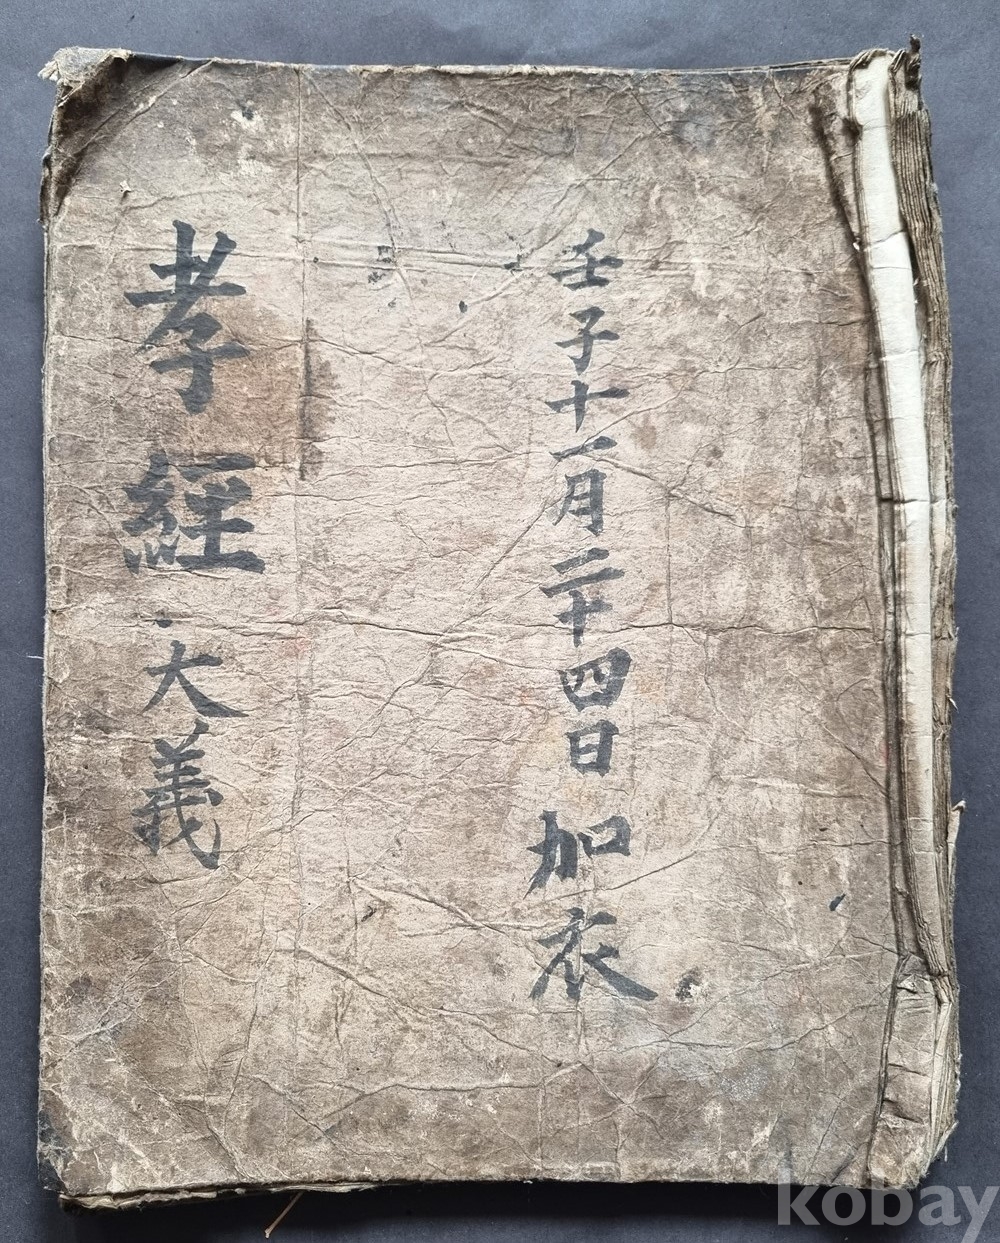 壬子十一月二十四日 加衣
孝經大義
kobay